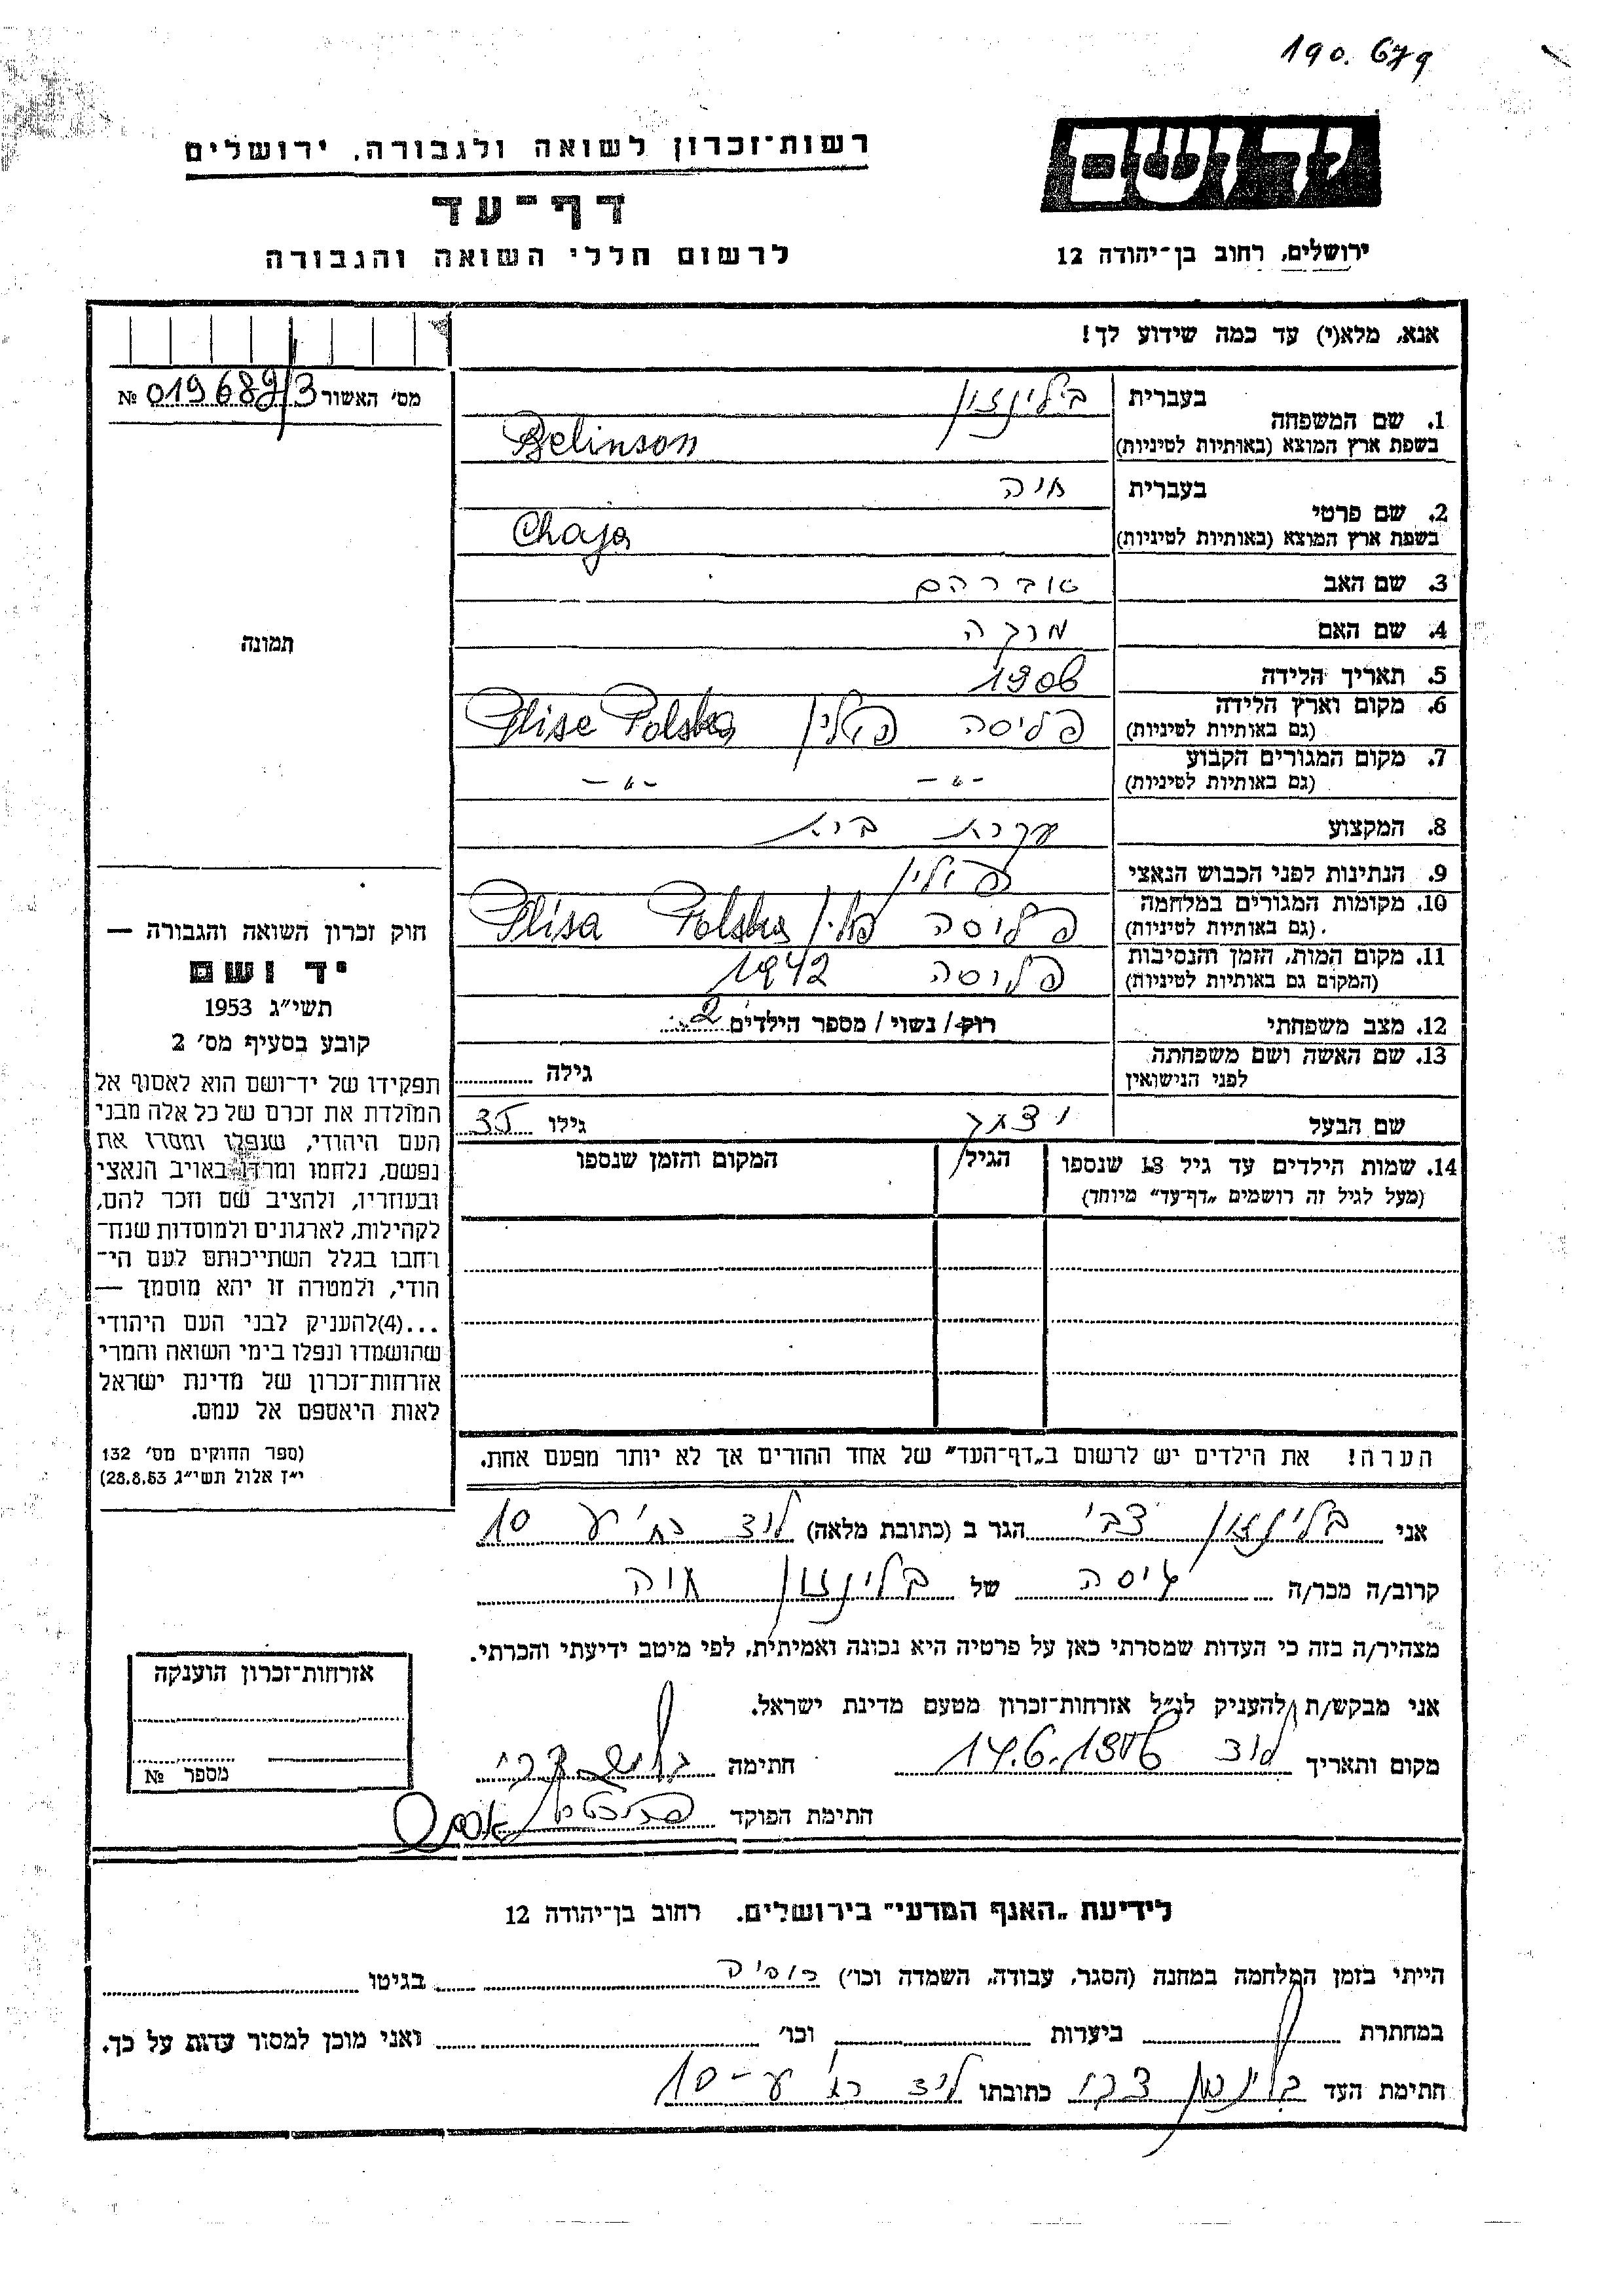 190.679
יד ושם
רשות־זכרון לשואה ולגבורה, ירושלים
דף־עד
לרשום חללי השואה והגבורה
ירושלים, רחוב בן־יהודה 12
אנא, מלא(י) עד כמה שידוע לך!
מס' האשור 019689/3 №
1. שם המשפחה
בעברית בילינזון
בשפת ארץ המוצא (באותיות לטיניות) Belinson
2. שם פרטי
בעברית חיה
בשפת ארץ המוצא (באותיות לטיניות) Chaja
3. שם האב אברהם
4. שם האם
5. תאריך הלידה 1906
6. מקום וארץ הלידה פליסה פולין Plise Polska
(גם באותיות לטיניות)
7. מקום המגורים הקבוע -"- -"-
(גם באותיות לטיניות)
8. המקצוע עקרת בית
9. הנתינות לפני הכבוש הנאצי פולין
10. מקומות המגורים במלחמה פליסה פולין Plisa Polska
(גם באותיות לטיניות)
11. מקום המות, הזמן והנסיבות פליסה 1942
(המקום גם באותיות לטיניות)
12. מצב משפחתי רוק/ נשוי / מספר הילדים 2
13. שם האשה ושם משפחתה גילה
לפני הנישואין
שם הבעל יצחק גילו 35
14. שמות הילדים עד גיל 18 שנספו הגיל המקום והזמן שנספו
(מעל לגיל זה רושמים „דף־עד" מיוחד)
הערה! את הילדים יש לרשום ב„דף־העד" של אחד ההורים אך לא יותר מפעם אחת.
תמונה
חוק זכרון השואה והגבורה —
יד ושם
תשי"ג 1953
קובע בסעיף מס' 2
תפקידו של יד־ושם הוא לאסוף אל
המולדת את זכרם של כל אלה מבני
העם היהודי, שנפלו ומסרו את
נפשם, נלחמו ומרדו באויב הנאצי
ובעוזריו, ולהציב שם וזכר להם,
לקהילות, לארגונים ולמוסדות שנח־
רחבו בגלל השתייכותם לעם הי־
הודי, ולמטרה זו יהא מוסמך —
...(4)להעניק לבני העם היהודי
שהושמדו ונפלו בימי השואה והמרי
אזרחות־זכרון של מדינת ישראל
לאות היאספם אל עמם.
(ספר החוקים מס' 132
י"ז אלול תשי"ג 28.8.53)
אני בלינזון צבי הגר ב (כתובת מלאה) לוד 10
קרוב/ה מכר/ה גיסה של בלינזון חיה
מצהיר/ה בזה כי העדות שמסרתי כאן על פרטיה היא נכונה ואמיתית, לפי מיטב ידיעתי והכרתי.
אני מבקש/ת להעניק לנ"ל אזרחות־זכרון מטעם מדינת ישראל.
מקום ותאריך לוד 14.6.1956 חתימה
חתימת הפוקד
אזרחות־זכרון הוענקה
מספר №
לידיעת „האגף המדעי" בירושלים, רחוב בן־יהודה 12
הייתי בזמן המלחמה במחנה (הסגר, עבודה, השמדה וכו') רוסיה בגיטו
במחתרת ביערות וכו' ואני מוכן למסור עדות על כך.
חתימת העד בלינזון צבי כתובתו לוד 10